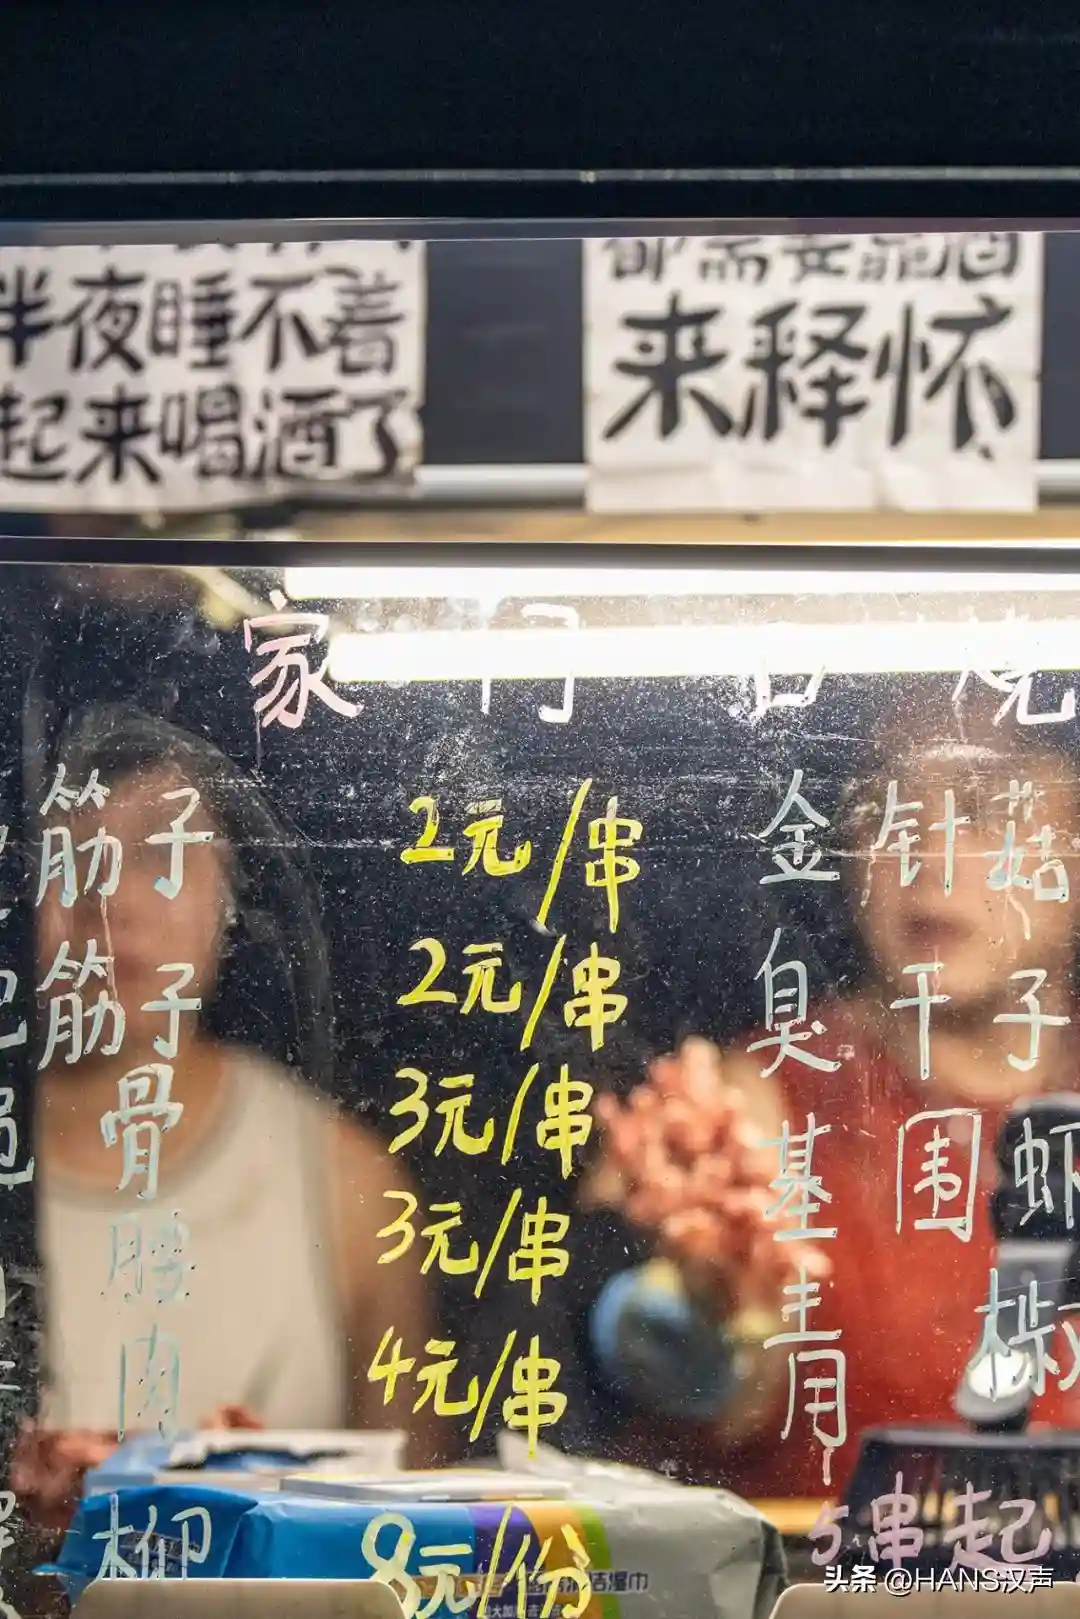 半夜睡不着
起来喝酒了
都需要靠酒
来释怀
家门口烧
筋子 2元/串 金针菇
筋子 2元/串 臭干子
骨 3元/串 基围虾
腰 3元/串 青椒
肉 4元/串
柳 8元/份
5串起
洁湿巾
头条 @HANS汉声